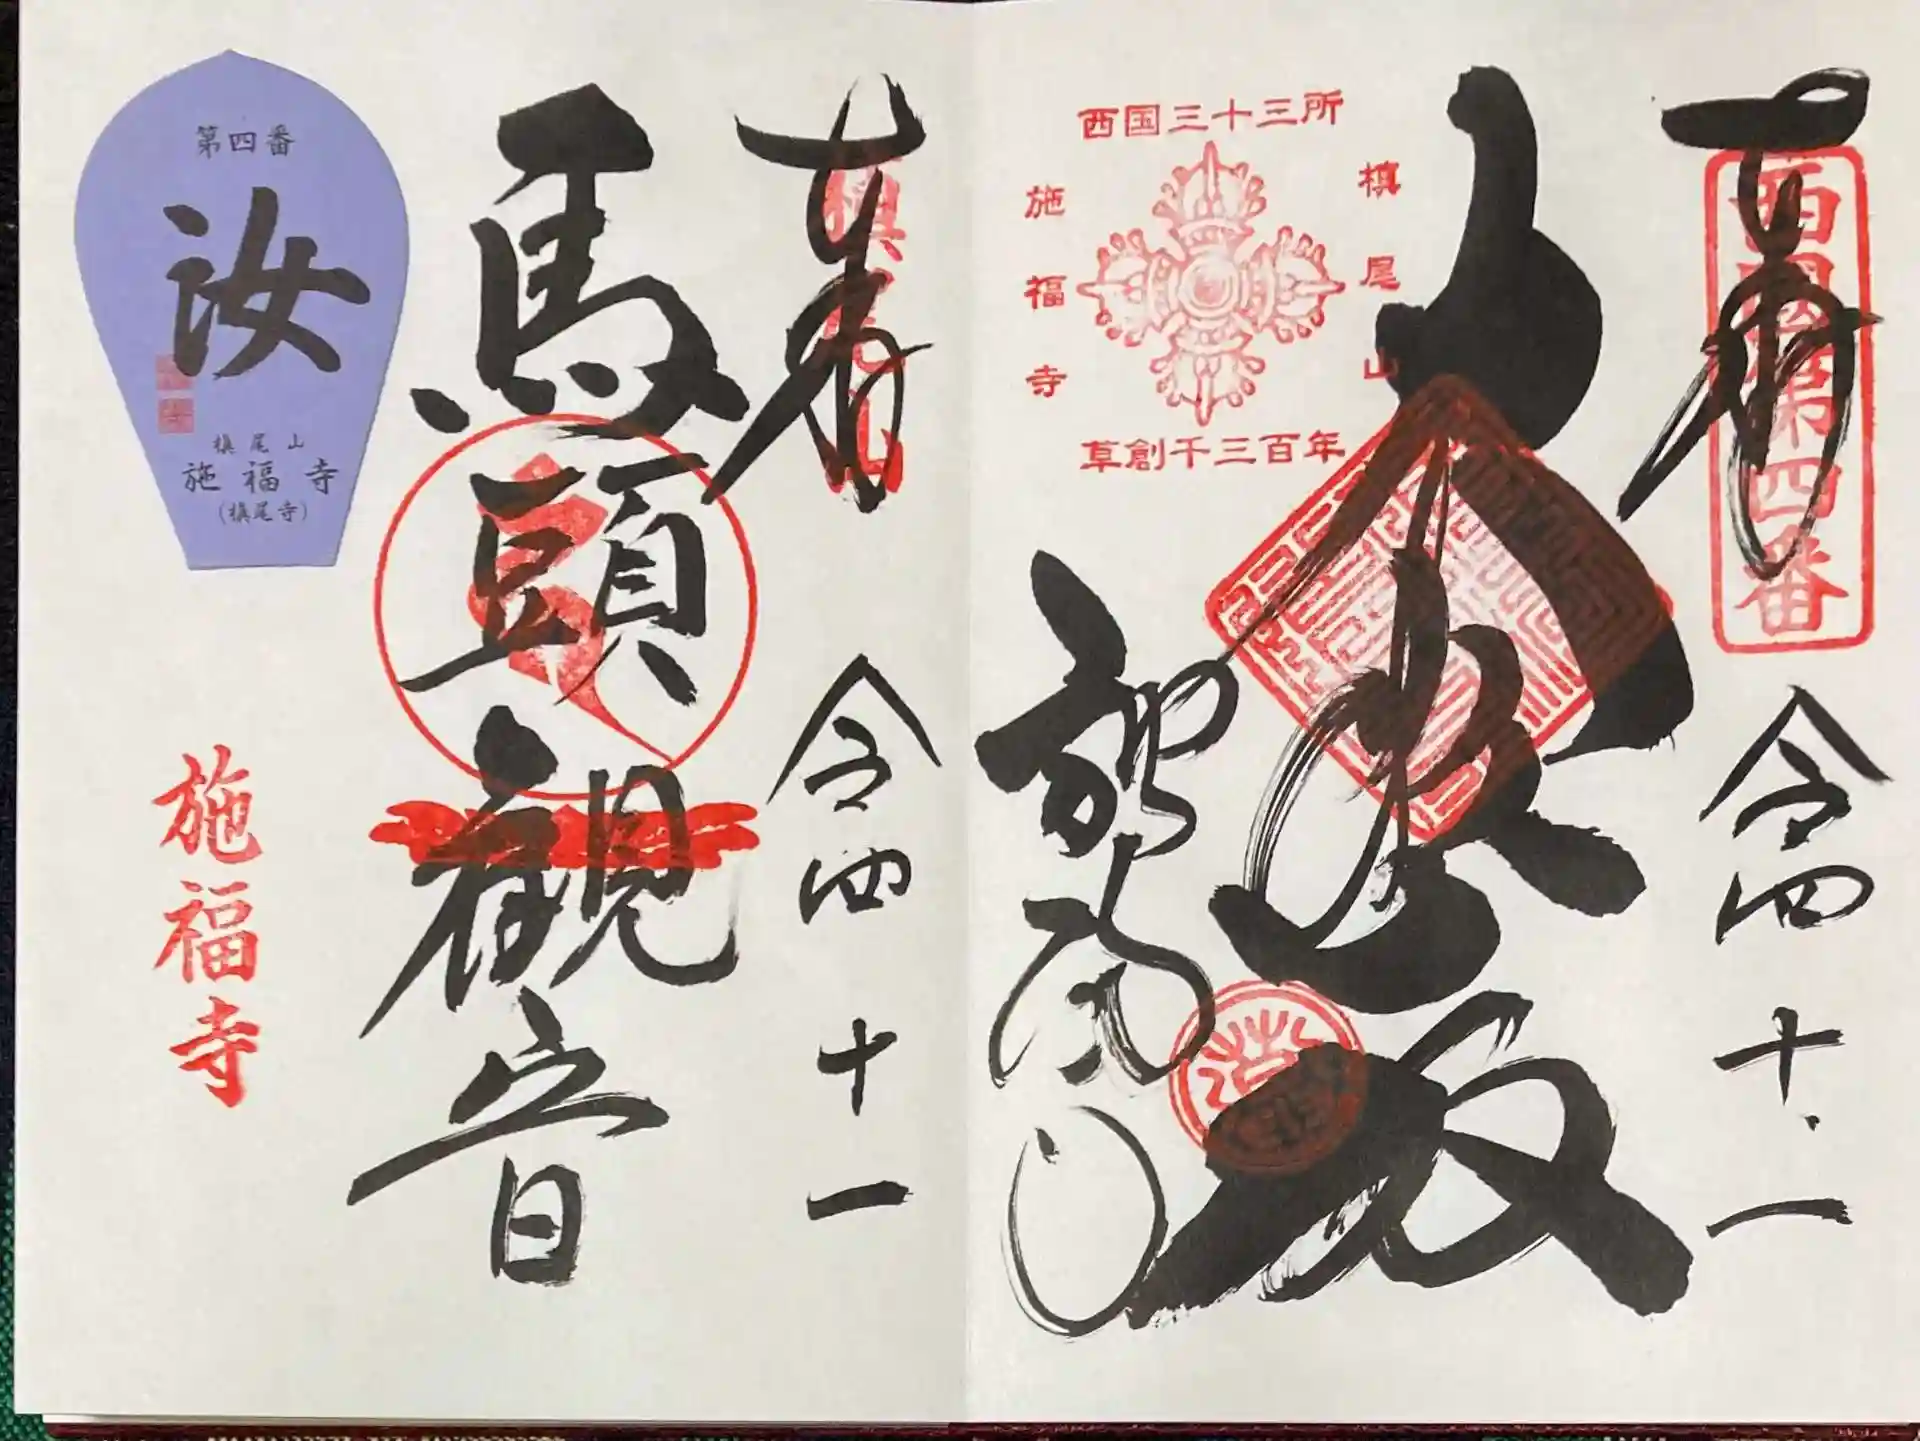 奉拝
令四十・一
西国第四番
大悲殿
西国三十三所
槇尾山
施福寺
草創千三百年
施福寺
奉拝
令四十一
槇尾山
馬頭観音
第四番
汝
槇尾山
施福寺
(槇尾寺)
施福寺